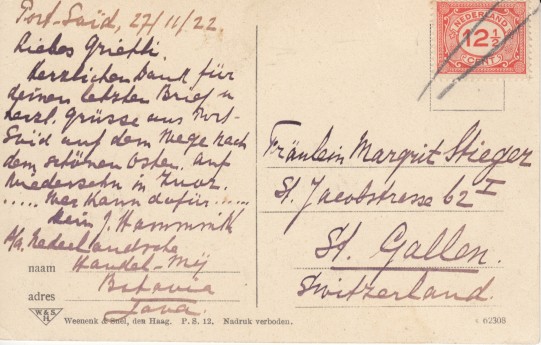 Port-Saïd, 27/11/22.
Liebes Grietli.
Herzlichen Dank für
deinen letzten Brief u
herzl. Grüsse aus Port-
Saïd auf dem Wege nach
dem schönen Osten. Auf
Wiedersehn in
..... Wer kann dafür.....
Dein J. Hammink
p/a. Nederlandsche
Handel-Mij
Batavia
Java.
naam
adres
W&S
H
Weenenk & Snel, den Haag. P. S. 12. Nadruk verboden.
NEDERLAND
12 1/2
CENT
Fräulein Margrit Stieger
St. Jacobstrasse 62 I
St. Gallen.
Switzerland.
62308